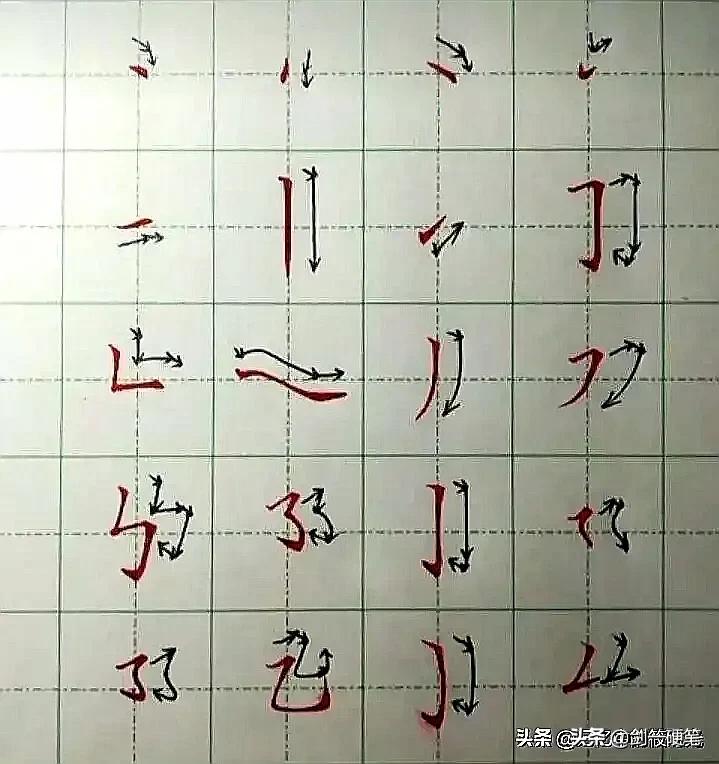 头条 @头条 @剑筱硬笔